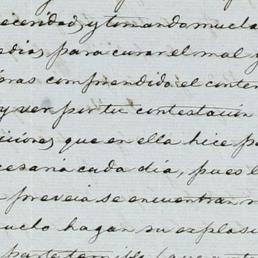 ecendad, y tomando mucha
edia, para curar el mal y
bras comprendido el conten
y ver por tu contestación
iciones, que en ella hice pa
cesaria cada día, pues l
preveia se encuentran
uelo hagan su explosi